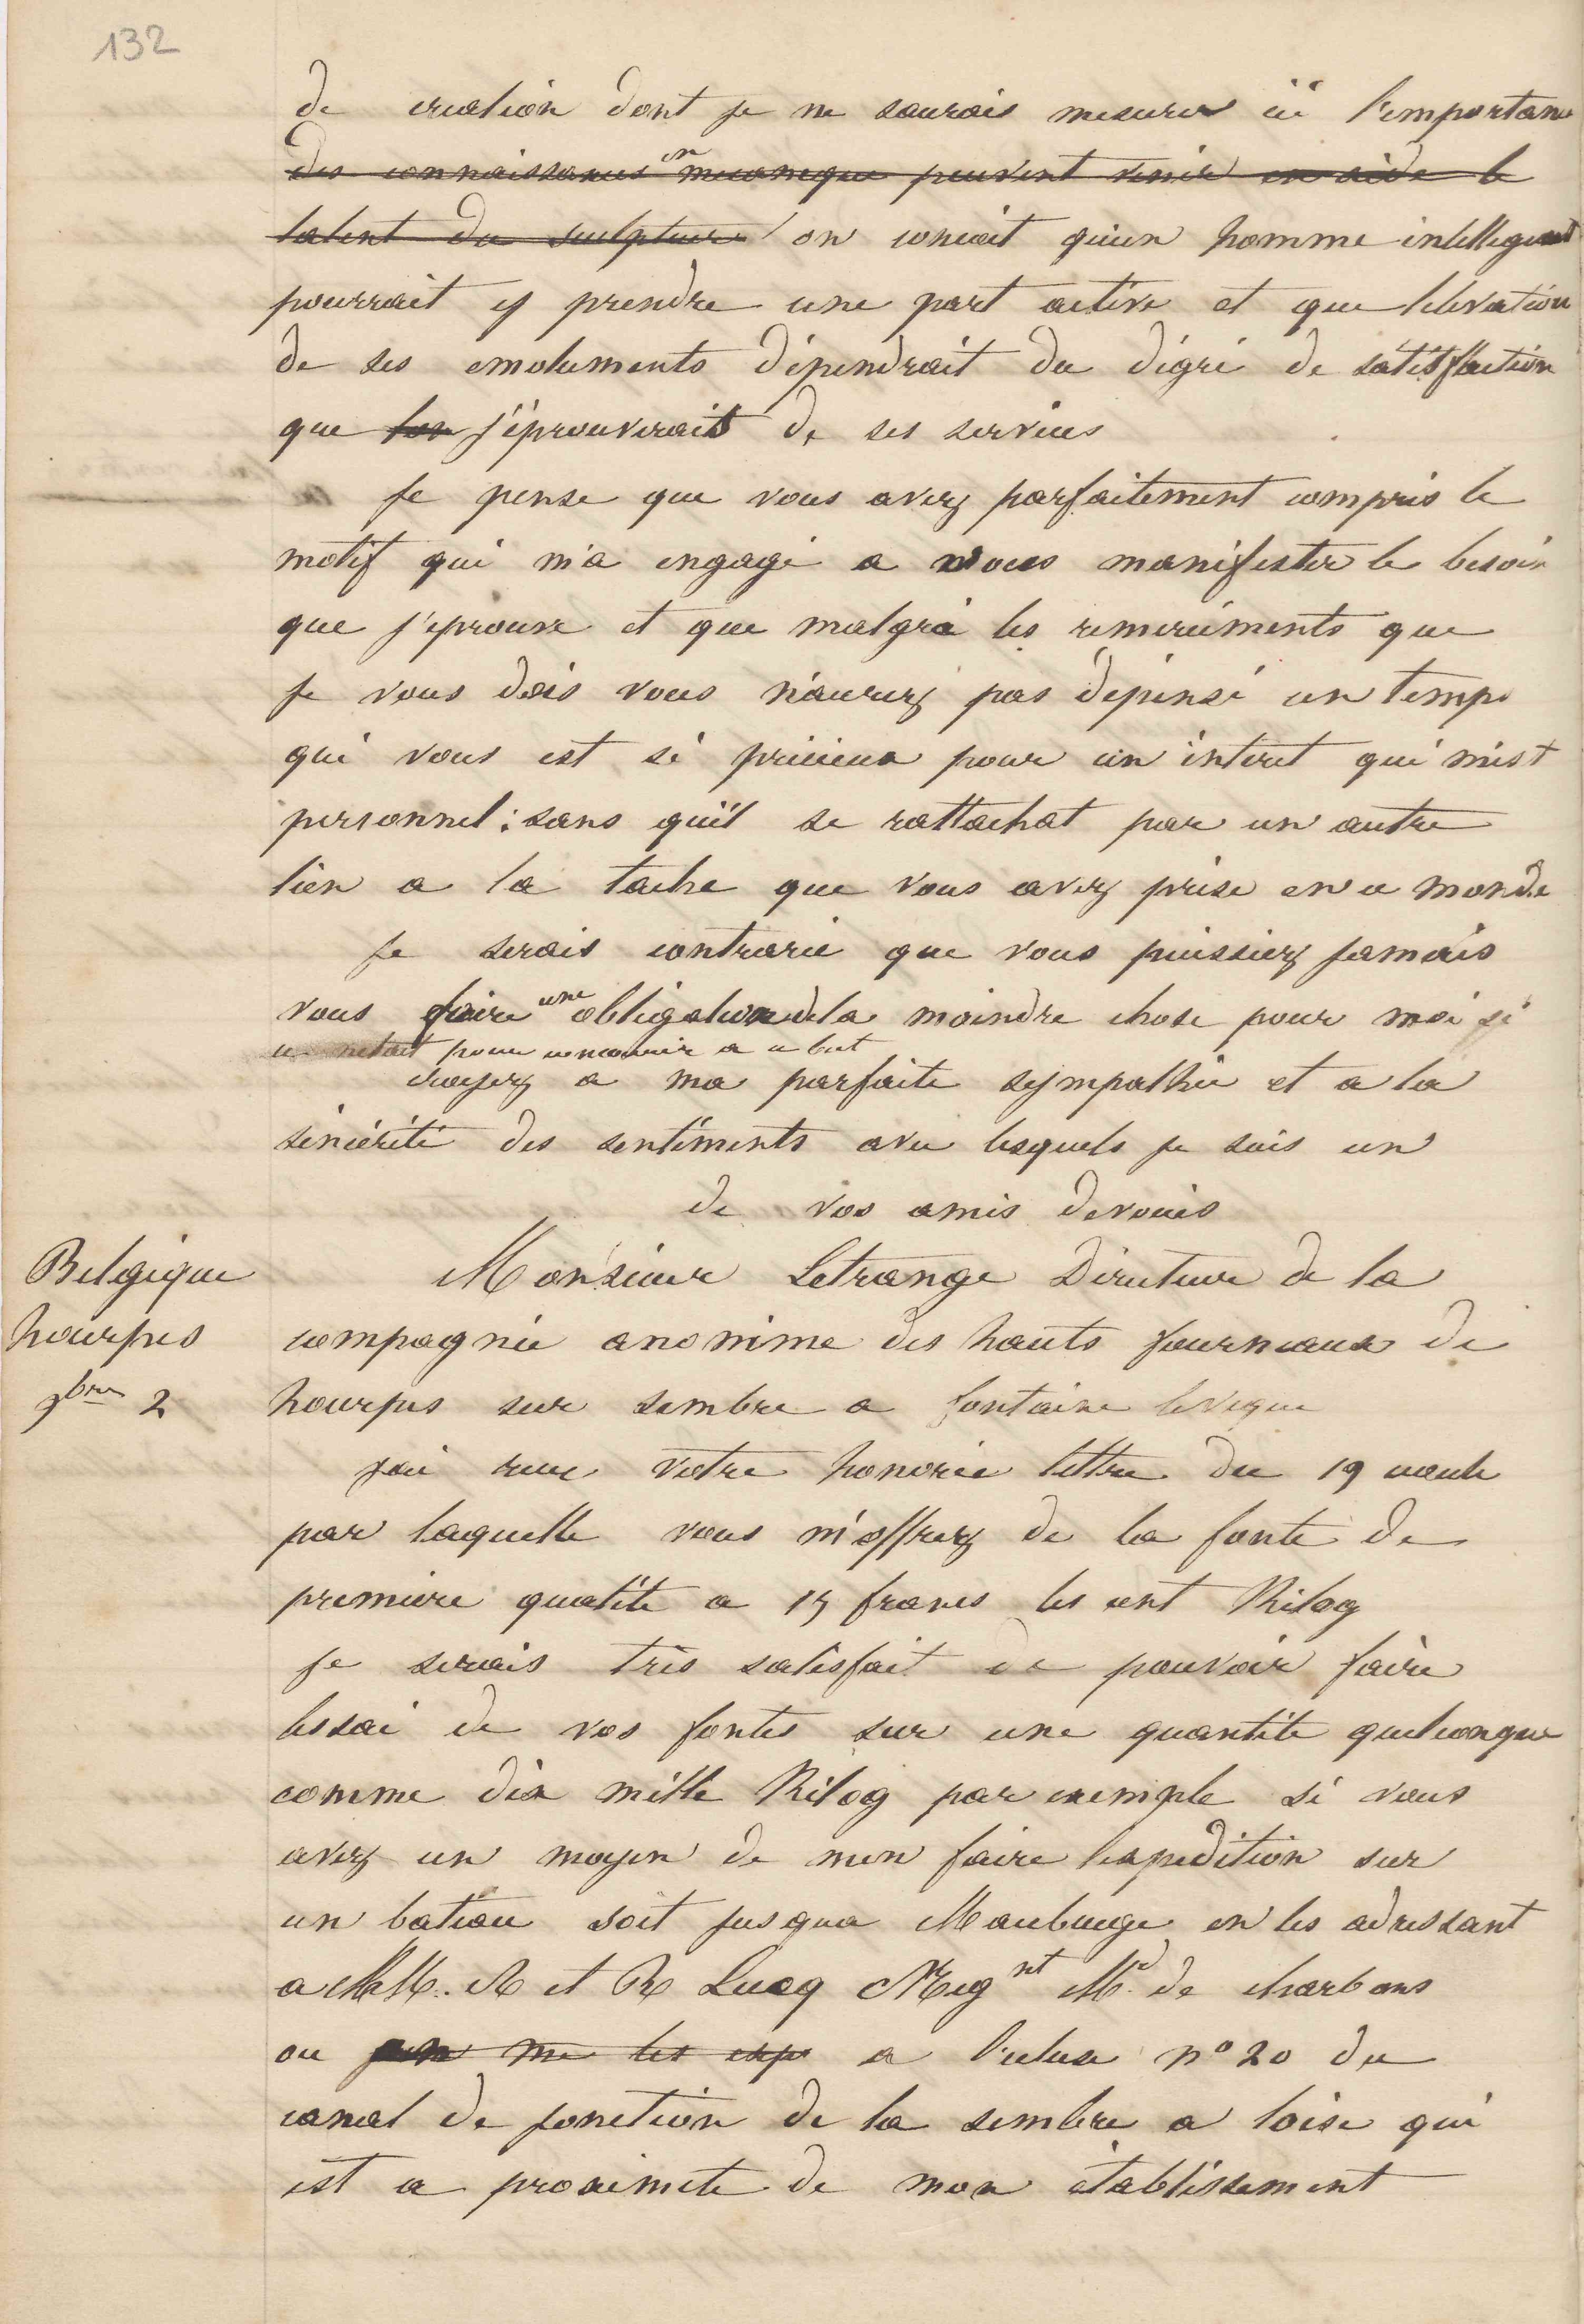 132
de creation dont je ne saurais mesurer ici l'importance
des connaissances en mecanique peuvent venir en aide le
talent du sculpteur on concoit qu'un homme intellegent
pourrait y prendre une part active et que lelevation
de ses emoluments dépendrait du dégré de satisffaction
que lon j'éprouverait de ses services
je pense que vous avez parfaitement compris le
motif qui m'a engagé a vous manifester le besoin
que j'eprouve et que malgré les remerciments que
je vous dois vous n'aurez pas dépensé un temps
qui vous est si précieux pour un interet qui m'est
personnel : sans qu'il se rattachat par un autre
lien a la tache que vous avez prise en ce monde
je serais contrarié que vous puissiez jamais
vous faire une obligation de la moindre chose pour moi si
ce netait pour concourir a ce but
croyez a ma parfaite sympathie et a la
sincérité des sentiments avec lesquels je suis un
de vos amis devoués
Belgique
hourpes
9bre 2
Monsieur Letrange Directeur de la
compagnie anonime des hauts fourneaux de
hourpes sur sambre a fontaine leveque
jai recu votre honorée lettre du 19 ecoulé
par laquelle vous m'offrez de la fonte de
premiere qualité a 15 francs les cent Kilog
je serais très satisfait de pouvoir faire
lessai de vos fontes sur une quantité quelconque
comme dix mille Kilog par exemple si vous
avez un moyen de men faire lexpedition sur
un bateau soit jusqua Maubeuge en les adressant
a MM. R et R Lucq Negnt Md de charbons
ou pour me les exp a l'ecluse n° 20 du
canal de jonction de la sambre a loise qui
est a proximeté de mon établissement